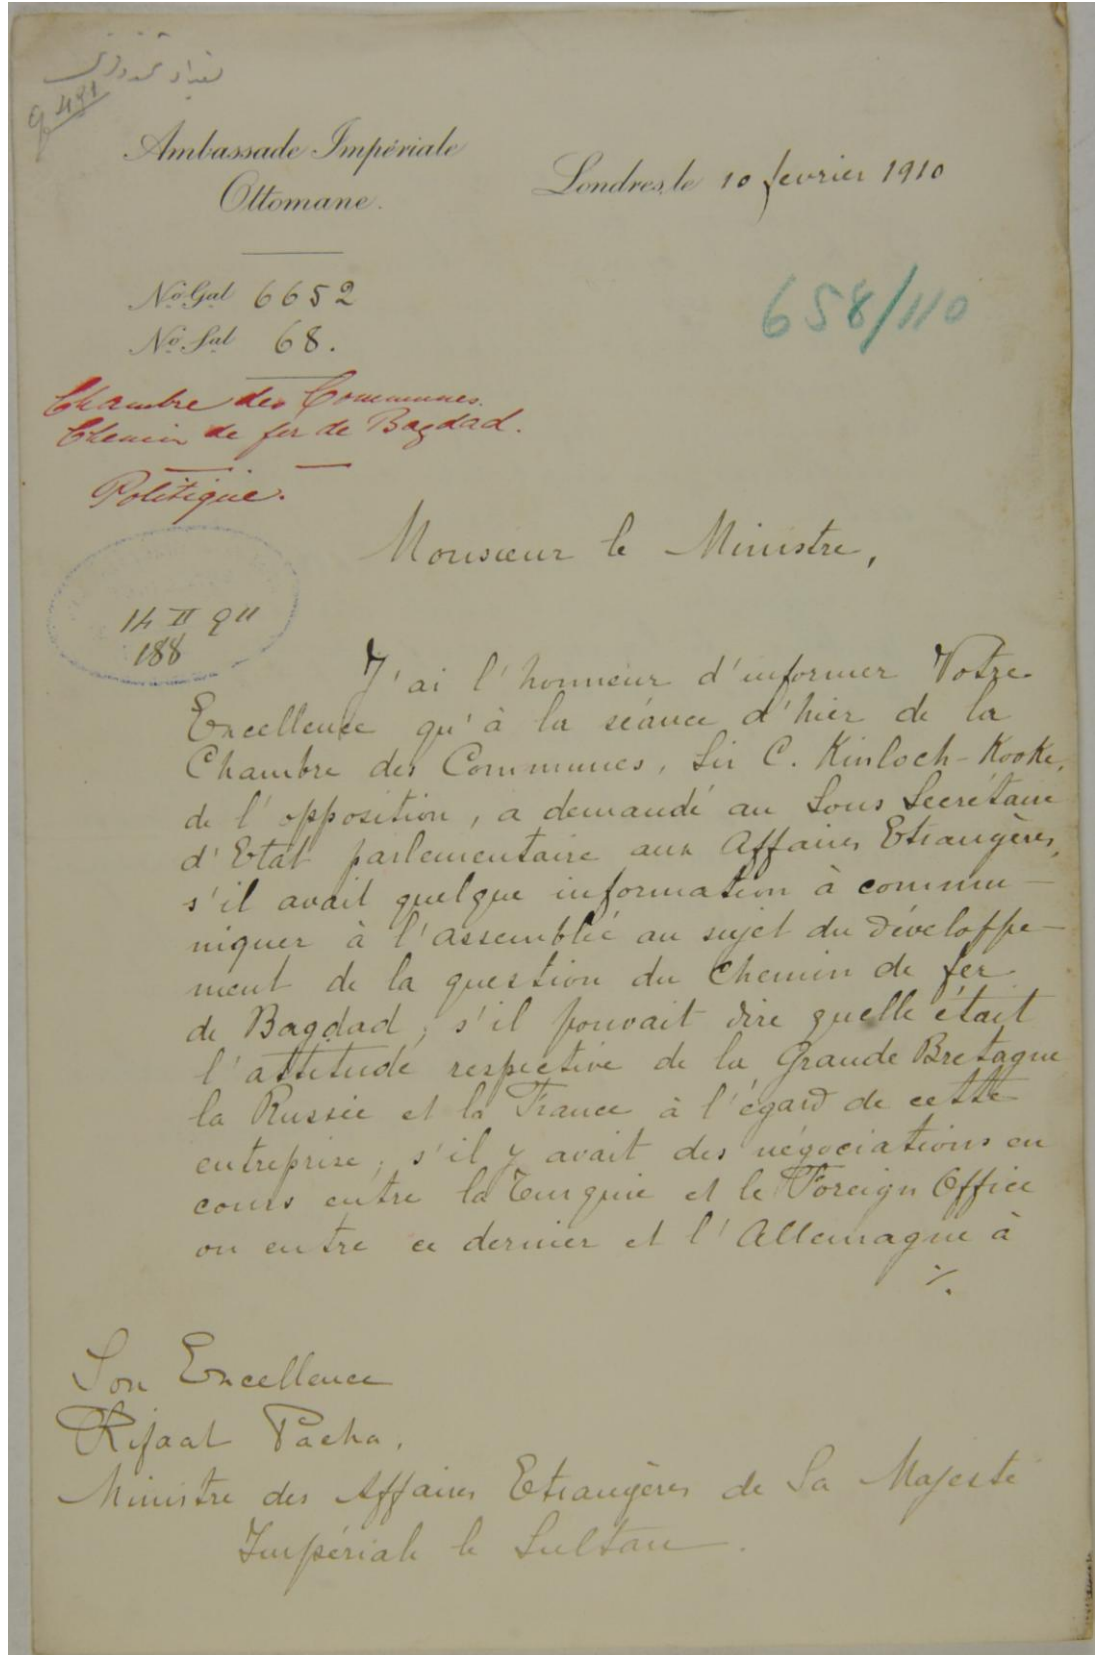 بغداد
Ambassade Impériale
Ottomane.
Londres, le 10 fevrier 1910
Nº Gal 6652
Nº Sal 68.
658/110
Chambre des Communes.
Chemin de fer de Bagdad.
Politique.
Monsieur le Ministre,
14 II 911
188
J'ai l'honneur d'informer Votre
Excellence qu'à la séance d'hier de la
Chambre des Communes, Sir C. Kinloch-Kooke,
de l'opposition, a demandé au Sous Secrétaire
d'Etat parlementaire aux Affaires Etrangères,
s'il avait quelque information à commu-
niquer à l'assemblée au sujet du développe-
ment de la question du Chemin de fer
de Bagdad; s'il pouvait dire quelle était
l'attitude respective de la Grande Bretagne
la Russie et la France à l'égard de cette
entreprise; s'il y avait des négociations en
cours entre la Turquie et le Foreign Office
ou entre ce dernier et l'Allemagne à
./.
Son Excellence
Rifaat Pacha,
Ministre des Affaires Etrangères de Sa Majesté
Impériale le Sultan.